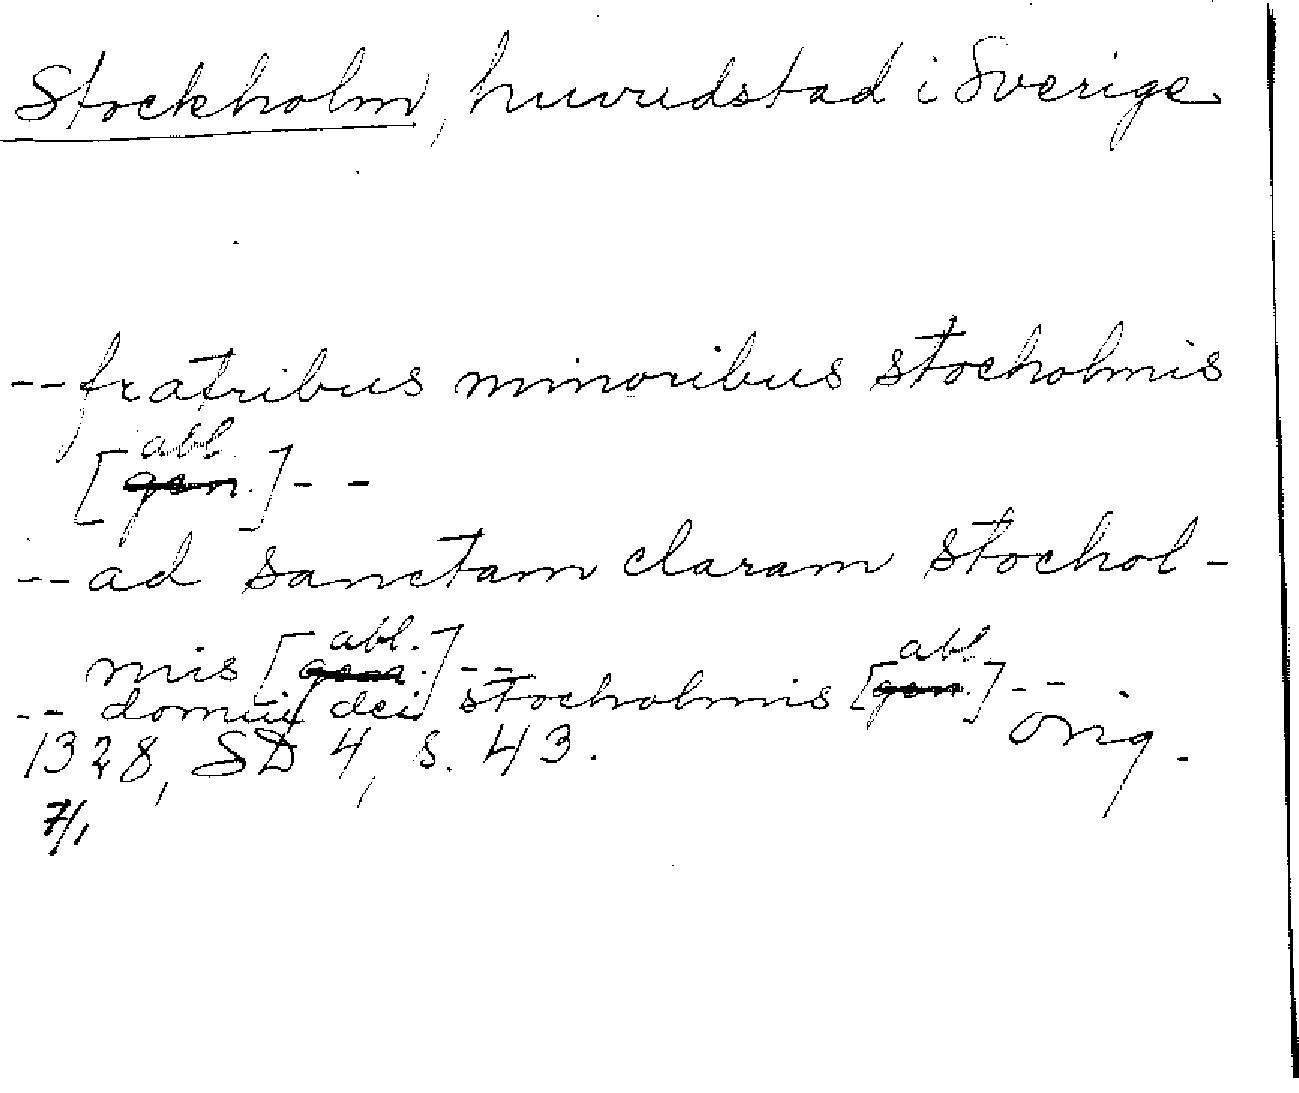 Stockholm, huvudstad i Sverige
-- fratribus minoribus stocholmis
abl.
[gen.] --
-- ad sanctam claram stochol-
mis [abl. gen.] --
-- domui dei stocholmis [abl gen.] --
1328, SD 4, s. 43. orig.
7/1